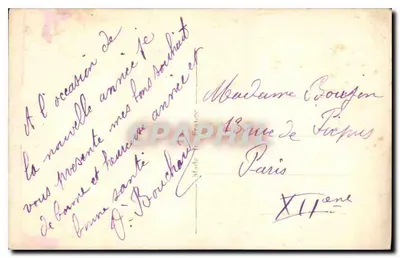 A l'occasion de
la nouvelle année je
vous présente mes bons souhaits
de bonne et heureuse année et
bonne santé
Bouchard
Madame Boujon
13 rue de Picpus
Paris
XIIème